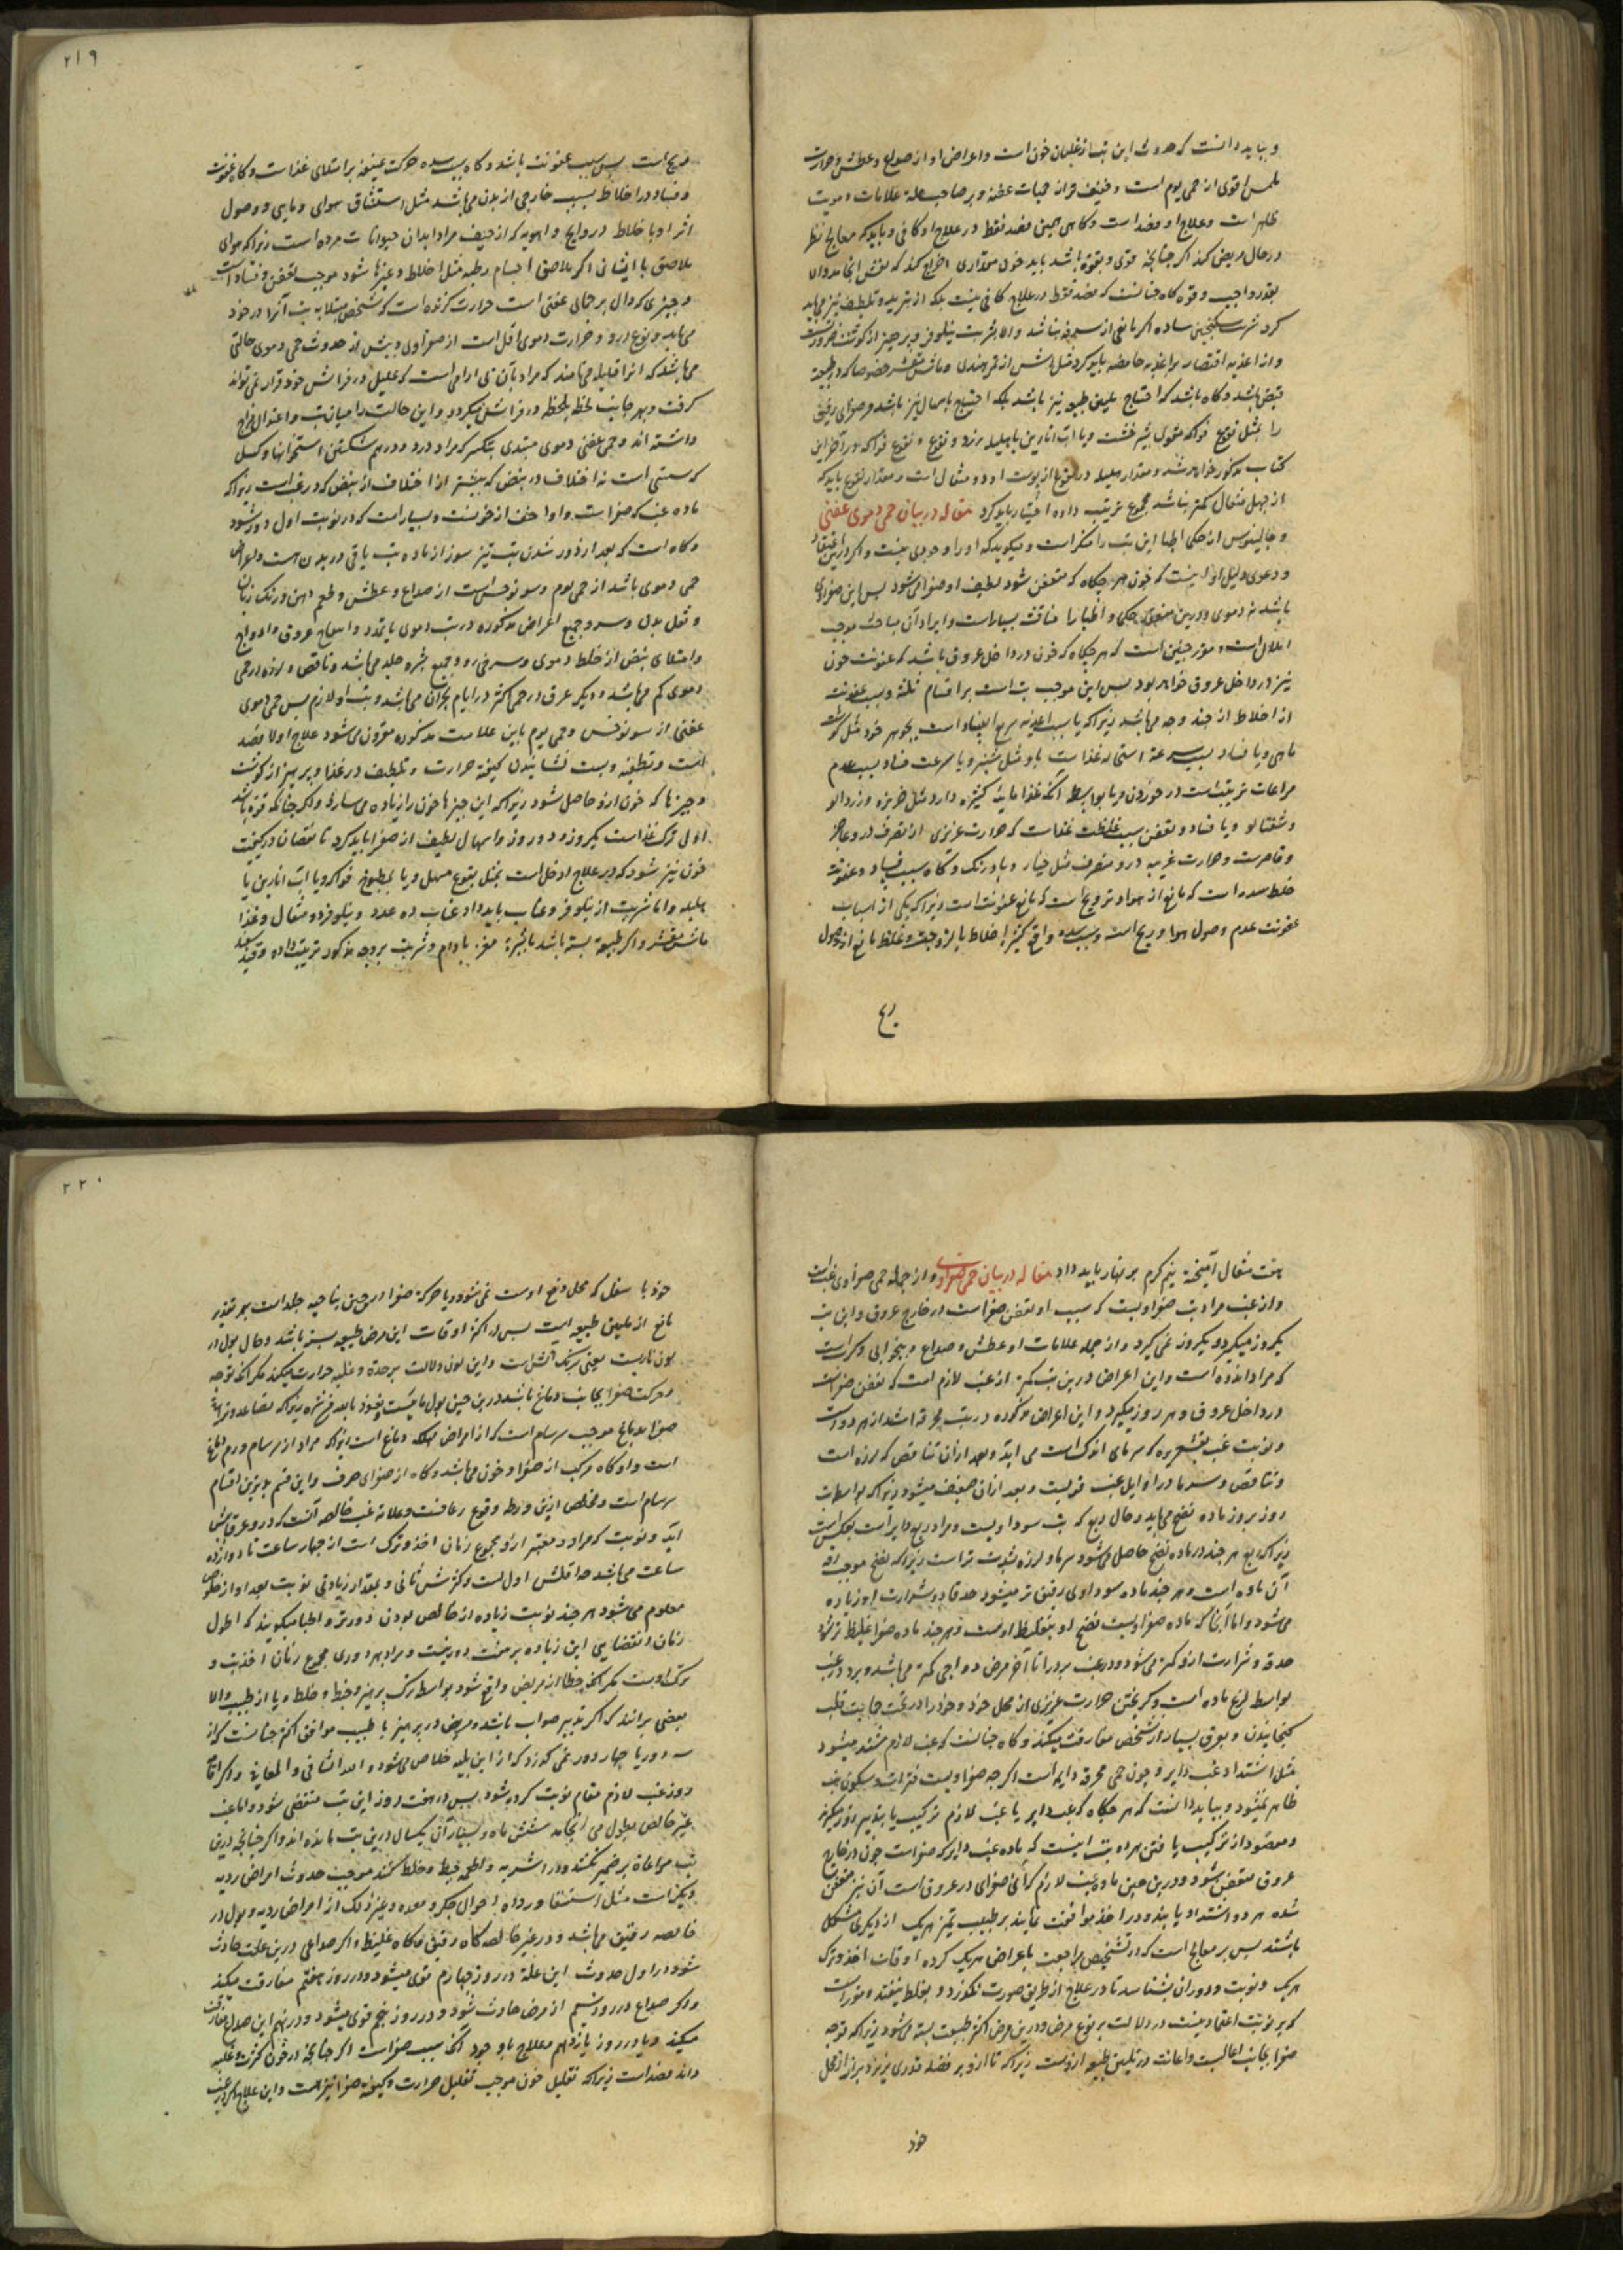 و بباید دانست که حدوث این تب از غلیان خون است و اعراض او از صداع و عطش و حرارت
ملمس اقوی از حمی یوم است و خفیف تر از حمیات عفنه و بر صاحب علة علامات دمویت
ظاهر است و علاج او فصد است و گاهی همین فصد فقط در علاج او کافی و باید که معالج نظر
در حال مریض کند اگر چنانچه قوی و بقوة باشد باید خون بمقداری اخراج کند که بغش انجامد والا
بقدر واجب و قوه گاه چنانست که فصد فقط در علاج کافی نیست بلکه از تبرید و تلطیف نیز می باید
کرد شربت سکنجبین ساده اگر مانعی از سرفه نباشد والا بشربت نیلوفر و پرهیز از گوشت ضرورتست
و از اغذیه اقتصار بر اغذیه حامضه باید کرد مثل آش از تمر هندی و ماش مقشر خصوصا که در طبیعة
قبض باشد و گاه باشد که احتیاج بتلیین طبیعه نیز باشد بلکه احتیاج باسهال نیز باشد مر صفرای رقیق
را بمثل نقوع فواکه مقوی بشیرخشت و یا آب انارین با هلیله زرد و نقوع و نقوع فواکه در آخر این
کتاب مذکور خواهد شد و مقدار هلیله در نقوع از پوست او ده مثقال است و مقدار نقوع باید که
از چهل مثقال کمتر نباشد مجموع ترتیب داده اختیار باید کرد مقاله در بیان حمی دموی عفنی
و جالینوس از حکمای اطبا این تب را منکر است و میگوید که او را وجودی نیست و اکر در این تحقیق
و دعوی دلیل او اینست که خون هر چگاه که متعفن شود لطیف او صفرا می شود پس این صفراوی
باشد نه دموی و درین معنی حکما و اطبا را مناقشت بسیار است و ایراد آن مباحث موجب
املال است و مقرر چنین است که هر چگاه که خون در داخل عروق باشد که عفونت خون
نیز در داخل عروق خواهد بود پس این موجب تب است بر اقسام ثلثة و سبب عفونت
از اخلاط از چند وجه می باشد زیرا که یا بسبب اغذیه سریع الفساد است بجوهر خود مثل گوشت
ماهی و یا فساد بسبب سرعة استحاله غذاست باو مثل شیر و یا سرعت فساد بسبب عدم
مراعات ترتیبست در خوردن و یا بواسطه آنکه غذا مایة کثیره دارد مثل خربزه و زردالو
و شفتالو و یا فساد و تعفن بسبب غلظت غذاست که حرارت غریزی از تصرف در و عاجز
و قاصرست و حرارت غریبه در و متصرف مثل خیار و بادرنگ و گاه سبب فساد و عفونت
خلط سده است که مانع از هوا و ترویح است که مانع عفونت است زیرا که یکی از اسباب
عفونت عدم وصول هوا و ریح است و سبب سده واقع کثیر اخلاط یا لزوجت و غلظ مانع از وصول
ریح
۲۱۹
ریح است پس سبب عفونت باشد و گاه سبب سده حرکت عنیفه بر امتلای غذاست و گاه عفونت
و فساد در اخلاط بسبب خارجی از بدن می باشد مثل استنشاق هوای وبایی و وصول
اثر او باخلاط در روایح و اهویه که از جیف مراد ابدان حیوانات مرده است زیرا که هوای
ملاصق با اینها نی اگر ملاصق اجسام رطبه مثل اخلاط و غیرها شود موجب تعفن و فساد است
و چیزی که دال بر حمای عفنی است حرارت کزنده است که شخص مبتلا به تب آنرا در خود
می یابد و نوع در و حرارت دموی اقل است از صفراوی و پیش از حدوث حمی دموی حالتی
می باشد که انرا قلیله می نامند که مراد بآن بی آرامی است که علیل در فراش خود قرار نمی تواند
گرفت و بهر جانب لحظه بلحظه در فراش میگردد و این حالت را میان تب و اعتدال مزاج
داشته اند و حمی عفنی دموی مبتدی بتکسر که مراد درد و در هم شکستن استخوانها و کسل
که سستی است نه اختلاف در نبض که بیشتر از اختلاف از نبض که در غب است زیرا که
ماده غب که صفراست و او اخف از خونست و بسیار است که در نوبت اول دور شود
و گاه است که بعد از دور شدن تب تیز سوز از ماده تب باقی در بدن هست و اعراض
حمی دموی باشد از حمی یوم و سونوخس است از صداع و عطش و طعم دهن و رنگ زبان
و ثقل بدن و سرو جمیع اعراض مذکوره در تب دموی با تمدد و انتفاخ عروق و اوداج
و امتلای نبض از خلط دموی و سرخی رو و جمیع بشره جلد می باشد و ناقص و لرزه در حمی
دموی کم می باشد و دیگر عرق در حمی اکثر در ایام بحران می باشد و تب او لازم پس حمی دموی
عفنی از سونوخس و حمی یوم باین علامت مذکوره مقرون می شود علاج اولا فصد
است و تطفیه و پست نشانیدن کیفیة حرارت و تلطیف در غذا و پرهیز از گوشت
و چیزها که خون ازو حاصل شود زیرا که این چیزها خون را زیاده می سازد و اگر چنانکه قوة باشد
اولی ترک غذاست یکروز و دو روز و اسهال لطیف از صفرا باید کرد تا نقصان در کیفیت
خون نیز شود که در علاج ادخل است بمثل نقوع مسهل و یا بمطبوخ فواکه و یا آب انارین با
هلیله و اما شربت از نیلوفر و عناب باید داد عناب ده عدد و نیلوفر دو مثقال و غذا
ماش مقشر و اگر طبیعة بسته باشد باشیره مغز بادام و شربت بروجه مذکور ترتیب داده و قند سفید
هفت مثقال آمیخته نیم گرم بر نهار باید داد مقاله در بیان حمی صفراوی و از جمله حمی صفراوی غب است
و از غب مراد تب صفراویست که سبب او تعفن صفراست در خارج عروق و این تب
یکروز میگیرد و یکروز نمی گیرد و از جمله علامات او عطش و صداع و بیخوابی و کرب است
که مراد اندوه است و این اعراض درین تب کمتر از غب لازم است که تعفن صفراست
در داخل عروق و هر روز میگیرد و این اعراض مذکوره در تب محرقه اشد از هر دو است
و نوبت غب بقشعریره که سرمای اندک است می آید و بعد ازان تنافض که لرزه است
و تنافض و سرما در اوایل غب قویست و بعد ازان ضعیف میشود زیرا که بواسطه تب
روز بروز ماده نضج می یابد و حال ربع که تب سوداویست و مراد ربع دایر است بعکس است
زیرا که ربع هر چند در ماده نضج حاصل می شود سرما و لرزه بشدت تر است زیرا که نضج موجب رقة
آن ماده است و هر چند ماده سوداوی رقیق تر میشود حدة و شرارت او زیاده
می شود و اما آنجا که ماده صفراویست نضج او بتغلیظ اوست و هر چند ماده صفرا غلیظ تر شود
حدة و شرارت ازو کمتر می شود و در غب برد را تا آخر مرض دواجی کمتر می باشد و برد در غب
بواسطه لزع ماده است و گریختن حرارت غریزی از محل خود و خود را در تحت حمایت قلب
گنجانیدن و بعرق بسیار از شخص مفارقت میکند و گاه چنانست که غب لازم مشتد میشود
مثل اشتداد غب دایر و چون حمی محرقه دایمه است اگرچه صفراویست فتراشد و سکون تب
ظاهر نمیشود و بباید دانست که هر چگاه که غب دایر با غب لازم ترکیب یابد هر روز میگیرد
و مقصود از ترکیب یافتن هر دو تب اینست که ماده غب دایر که صفراست چون در خارج
عروق متعفن شود و درین حین ماده غب لازم که آن صفرای در عروق است آن نیز متعفن
شده هر دو اشتداد یابند و در اخذ موافقت نمایند بر طبیب تمیز هر یک از دیگری مشکل
باشد پس بر معالج است که در تشخیص مراجعت باعراض هر یک کرده اوقات اخذ و ترک
هر یک و نوبت و دوران بشناسد تا در علاج از طریق صورت نگذرد و بغلط نیفتد و مقرر است
که بر نوبت اعتماد نیست در دلالت بر نوع مرض و درین مرض اکثر طبیعت بسته می شود زیرا که توجه
صفرا بجانب اعالیست و اعانت در تلیین طبیعه ازوست زیرا که تا از و بر فضله قدری نریزد براز از محل
خود
۲۲۰
خود با سفل که محل دفع اوست نمی شود و یا حرکة صفرا درین حین بناحیه جلد است بهر تقدیر
مانع از تلیین طبیعه است پس در اکثر اوقات این مرض طبیعه بسته باشد و حال بول در
لون ناریست یعنی برنگ آتش است و این لون دلالت بر حدة و غلبه حرارت میکند مگر آنکه توجه
و حرکت صفرا بجانب دماغ باشد درین حین بول مائیست و نعوذ بالله من شره زیرا که تصاعد و توجه
صفرا بدماغ موجب سرسام است که از امراض مهلکه دماغ است زیرا که مراد از سرسام ورم دماغ
است و او گاه مرکب از صفرا و خون می باشد و گاه از صفرای صرف و این قسم بدترین اقسام
سرسام است و مخلص ازین ورطه وقوع رعافست و علامة غب خالصه آنست که در و عرق بسیار
آید و نوبت که مراد و معتبر ازو مجموع زمان اخذ و ترک است از چهار ساعت تا دوازده
ساعت می باشد حد اقلش اول است و کثرتش ثانی و بمقدار زیادتی نوبت بعد او از خلوص
معلوم می شود هر چند نوبت زیاده از خالص بودن دورتر و اطبا میگویند که اطول
زمان انقضایی این زیاده بر هفت دور نیست و مراد بهر دوری مجموع زمان اخذ تب و
ترک اوست مگر آنکه خطا از مریض واقع شود بواسطه ترک پرهیز و خبط و خلط و یا از طبیب والا
بعضی برانند که اگر تدبیر صواب باشد و مریض در پرهیز با طبیب موافق اکثر چنانست که از
سه دور یا چهار دور نمی گذرد که از این بلیه خلاص می شود و الله الشافی و المعافی و اگر اتفاقا
روز غب لازم مقام نوبت گردیده شود پس در هفت روز این تب منقضی شود و اما غب
غیر خالص بطول می انجامد ششش ماه و بسیار آن یکسال درین تب مانده اند و اگر چنانچه درین
تب مراعاة پرهیز نکنند و در اشربه و اطعمه خبط و خلط کنند موجب حدوث امراض ردیه
دیگر است مثل استسقا و ورداه احوال جگر و معده و غیر ذلک از امراض ردیه و بول در
خالصه رقیق می باشد و در غیر خالصه گاه رقیق و گاه غلیظ و اگر صداعی درین علت حادث
شود در اول حدوث این علة در روز چهارم قوی میشود و در روز هفتم مفارقت میکند
و اگر صداع در روز سیم از مرض حادث شود و در روز پنجم قوی میشود و در نهم این صداع مفارقت
میکند و یا در روز یازدهم و علاج با وجود آنکه سبب صفراست اگر چنانچه در خون کثرت و غلبه
داند فصد است زیرا که تقلیل خون موجب تقلیل حرارت و کیفیة صفرا نیز هست و این علاج اکثر در غب